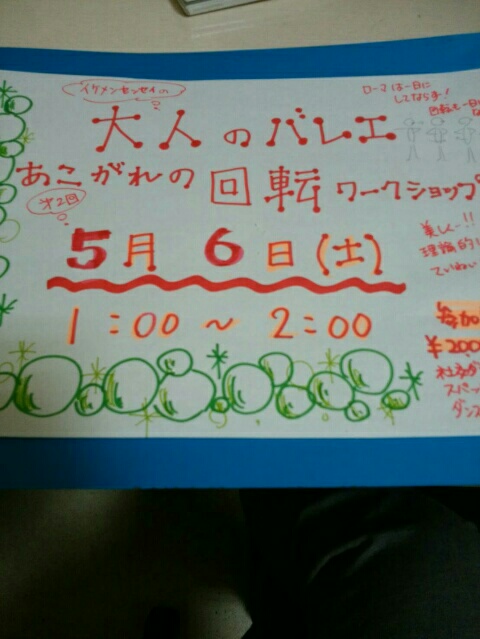 イケメンセンセイin
ローマは一日に
してならず!
回転も一日に
大人のバレエ
あこがれの回転ワークショップ
第2回
5月6日(土)
美しく!!
理論的に
ていねい
1:00~2:00
参加
¥200
社交ダ
スパ
ダンス